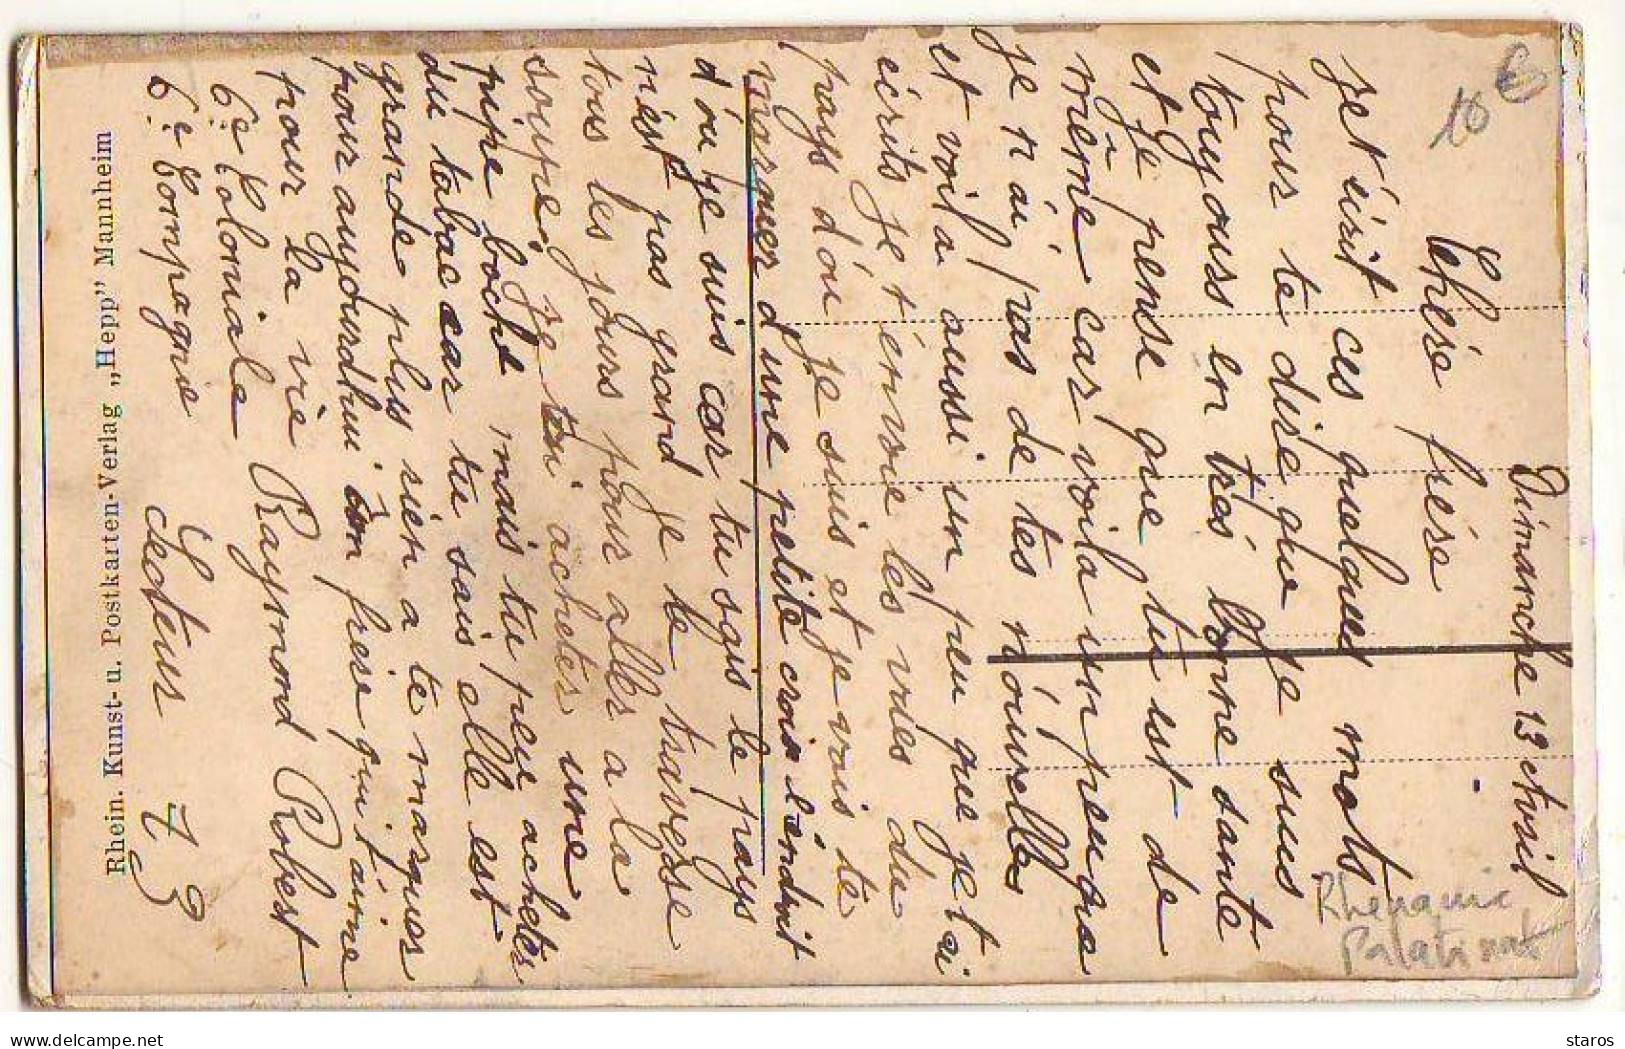 Dimanche 13 Avril
Chére frére
je t'écrit ces quelques mots
pour te dire que je suis
toujours en trés bonne santé
et je pense que tu est de
même car voila un peu que
je n'ai pas de tes nouvelles
et voila aussi un peu que je t ai
écrits je t'envoie les vues du
pays d'ou je suis et je vois te
marquer d'une petite crois l'éndroit
d'ou je suis car tu sais le pays
n'est pas grand je le traverse
tous les jours pour alles a la
soupe. je tai achetes une
pipe boche mais tu peu achetes
du tabac car tu sais elle est
grande plus rien a te marques
pour aujourdhui frére qui t'aime
pour la vie Raymond Robert
6.e Coloniale
6.e Compagnie Secteur 7 9
Rhein. Kunst- u. Postkarten-Verlag „Hepp” Mannheim
10 €
Rhenanie
Palatinat
www.delcampe.net
staros